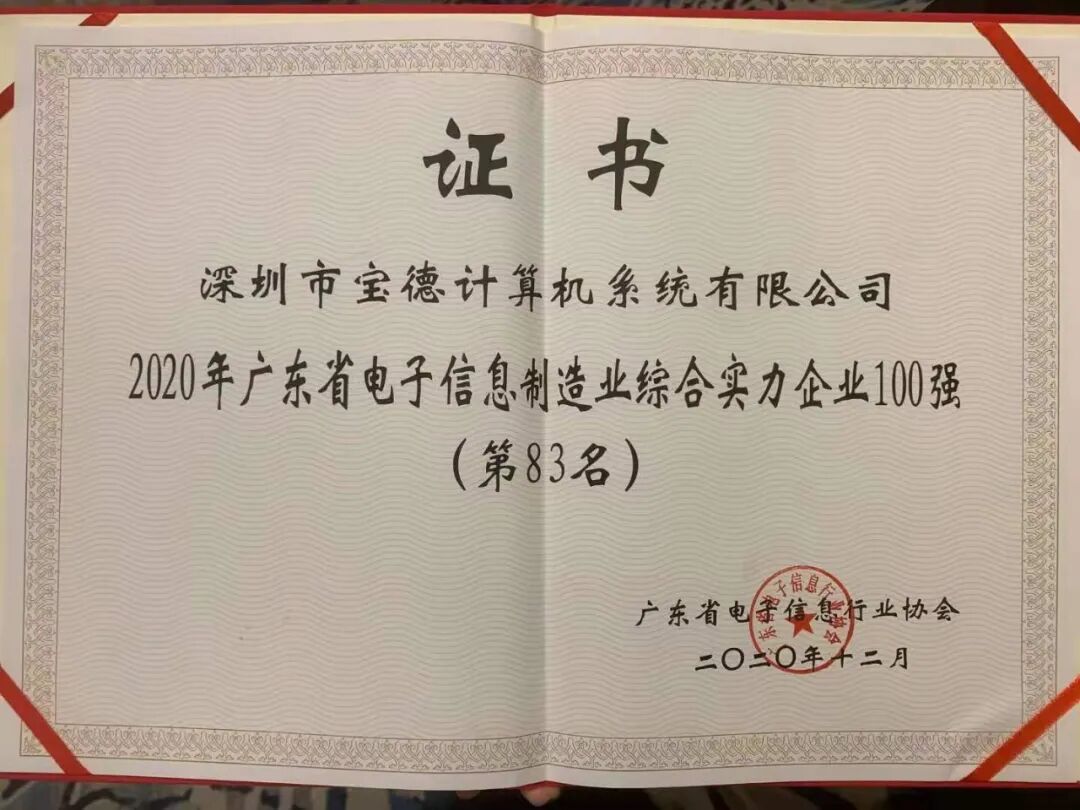 证书
深圳市宝德计算机系统有限公司
2020年广东省电子信息制造业综合实力企业100强
（第83名）
广东省电子信息行业协会
二〇二〇年十二月
广东省电子信息行业协会